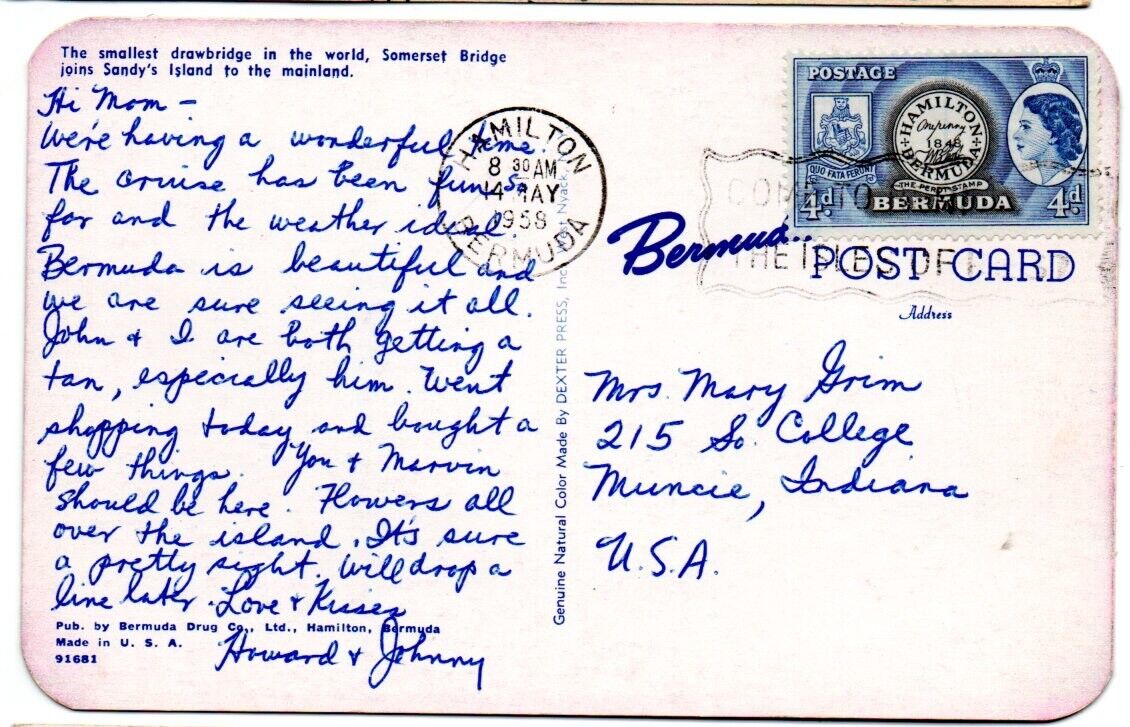 The smallest drawbridge in the world, Somerset Bridge
joins Sandy's Island to the mainland.
Hi Mom –
We're having a wonderful time.
The cruise has been fun so
far and the weather ideal.
Bermuda is beautiful and
we are sure seeing it all.
John & I are both getting a
tan, especially him. Went
shopping today and bought a
few things. You & Marvin
should be here. Flowers all
over the island. It's sure
a pretty sight. Will drop a
line later. Love & Kisses
Howard & Johnny
Pub. by Bermuda Drug Co., Ltd., Hamilton, Bermuda
Made in U. S. A.
91681
Genuine Natural Color Made By DEXTER PRESS, Inc. Nyack,
HAMILTON
8 30 AM
14 MAY
1958
BERMUDA
COME TO
THE ISLES OF
POSTAGE
HAMILTON
One penny
1848
BERMUDA
QUO FATA FERUNT
THE PEROT STAMP
4d BERMUDA 4d
Bermuda..
POST CARD
Address
Mrs. Mary Grim
215 So. College
Muncie, Indiana
U.S.A.